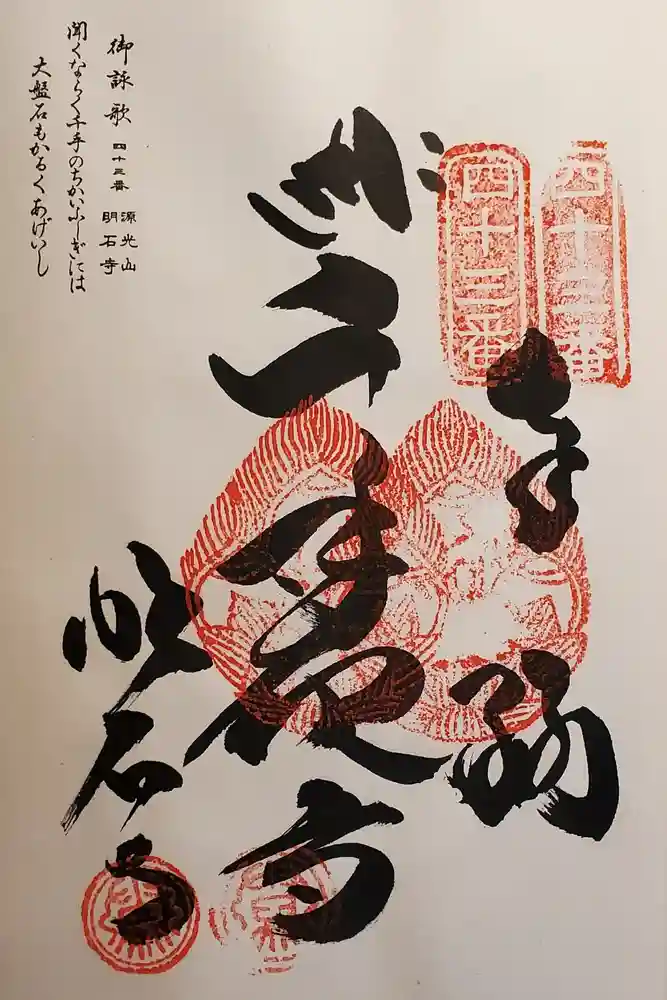 四十三番
四十三番
奉納
千手
明石寺
御詠歌 四十三番 源光山 明石寺
聞くならく千手のちかいふしぎには
大盤石もかるくあげいし